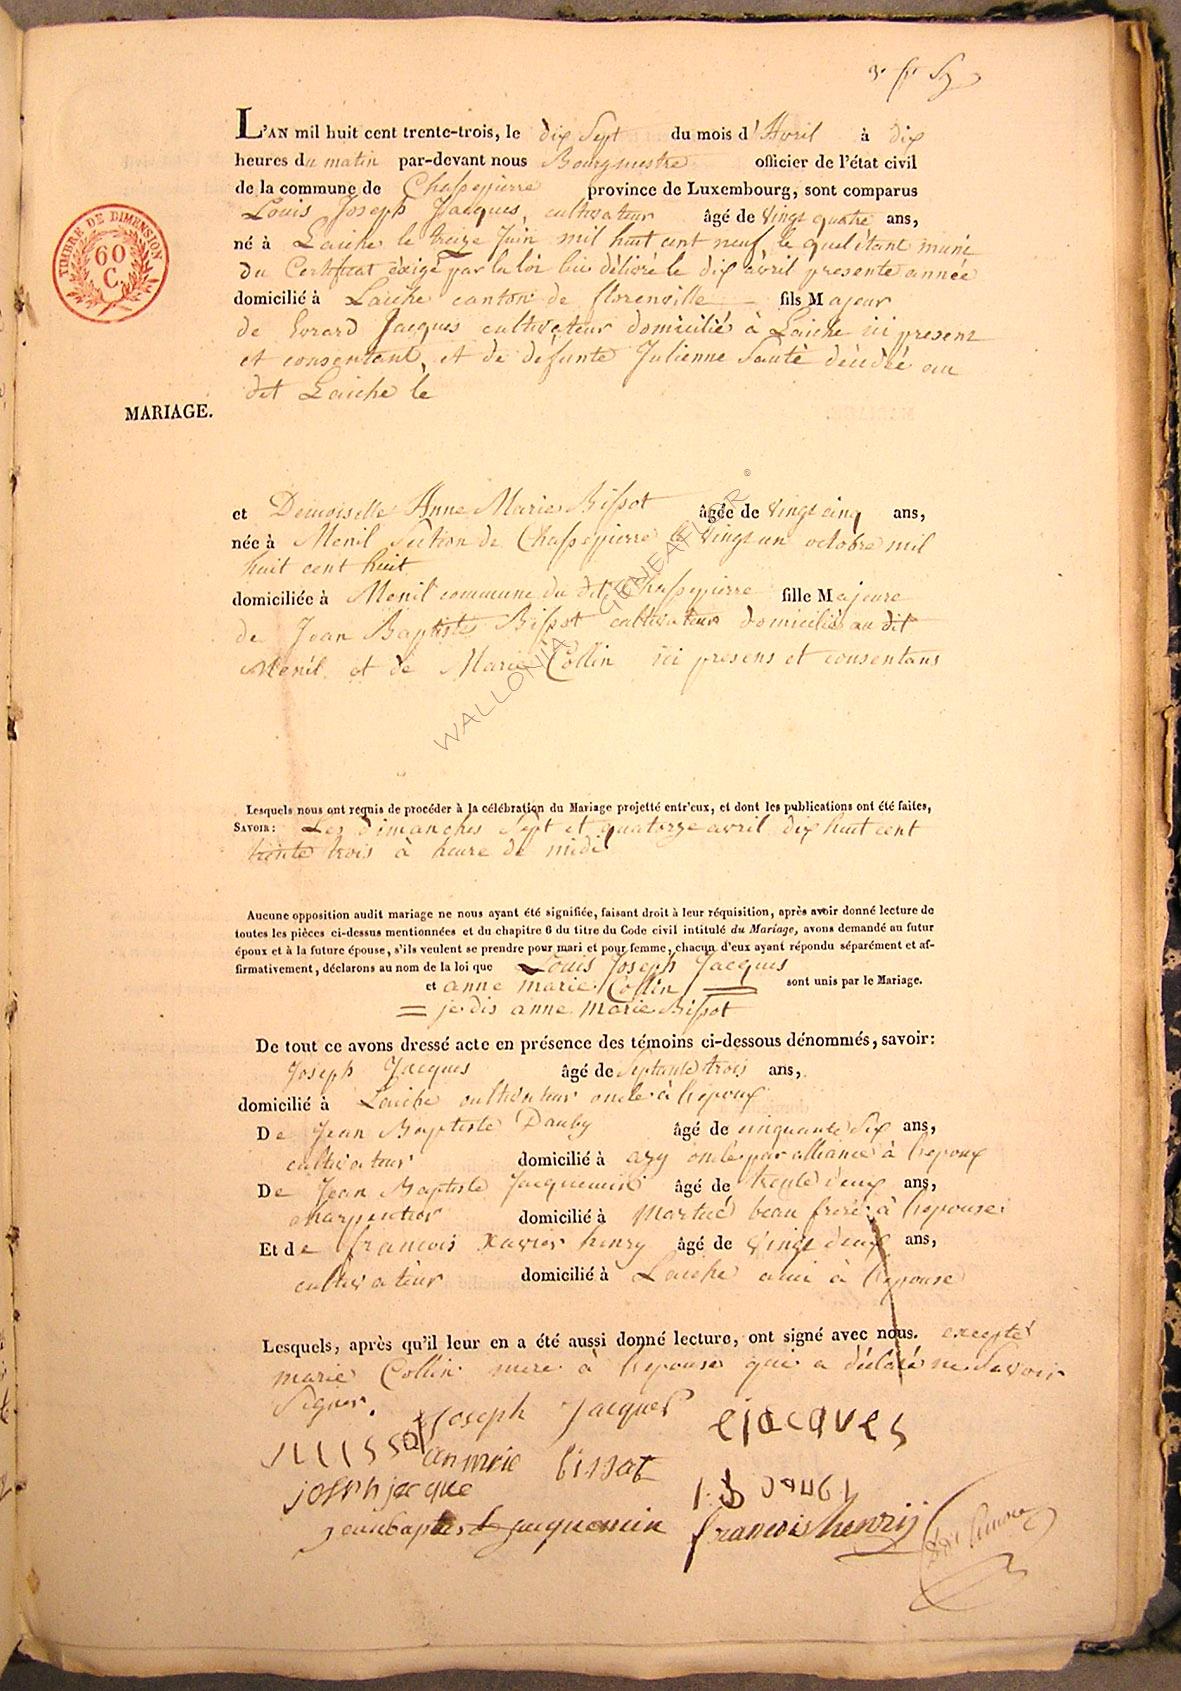 L'AN mil huit cent trente-trois, le dix Sept du mois d'Avril à dix
heures du matin par-devant nous Bourgmestre officier de l'état civil
de la commune de Chassepierre province de Luxembourg, sont comparus
Louis Joseph Jacques, cultivateur âgé de vingt quatre ans,
né à Laiche le treize Juin mil huit cent neuf, le quel étant muni
du Certificat exigé par la loi lui délivré le dix avril presente année
domicilié à Laiche canton de florenville fils Majeur
de Evrard Jacques cultivateur domicilié à Laiche ici present
et consentant, et de defunte Julienne Santé décédée au
dit Laiche le
MARIAGE.
et Demoiselle Anne Marie Bissot âgée de vingt cinq ans,
née à Menil Section de Chassepierre le vingt un octobre mil
huit cent huit
domiciliée à Menil commune du dit Chassepierre fille Majeure
de Jean Baptiste Bissot cultivateur domicilié au dit
Menil et de Marie Collin ici presens et consentans
WALLONIA GENEAFLOR ©
Lesquels nous ont requis de procéder à la célébration du Mariage projetté entr'eux, et dont les publications ont été faites,
SAVOIR: Les dimanches Sept et quatorze avril dix huit cent
trente trois à heure de midi
Aucune opposition audit mariage ne nous ayant été signifiée, faisant droit à leur réquisition, après avoir donné lecture de
toutes les pièces ci-dessus mentionnées et du chapitre 6 du titre du Code civil intitulé du Mariage, avons demandé au futur
époux et à la future épouse, s'ils veulent se prendre pour mari et pour femme, chacun d'eux ayant répondu séparément et af-
firmativement, déclarons au nom de la loi que Louis Joseph Jacques
et anne marie Collin sont unis par le Mariage.
= je dis anne Marie Bissot
De tout ce avons dressé acte en présence des témoins ci-dessous dénommés, savoir:
Joseph Jacques âgé de Septante trois ans,
domicilié à Laiche cultivateur oncle à l'epoux
De Jean Baptiste Dauby âgé de cinquante Six ans,
cultivateur domicilié à azy oncle par alliance à l'epoux
De Jean Baptiste Jacquemin âgé de trente deux ans,
charpentier domicilié à Martué beau frere à l'epouse
Et de francois Xavier henry âgé de vingt deux ans,
cultivateur domicilié à Laiche ami à l'epouse
Lesquels, après qu'il leur en a été aussi donné lecture, ont signé avec nous. excepté
marie Collin mere à l'epouse qui a déclaré ne Savoir
Signer.
Joseph Jacques ejacques
anmrie bissot
joseph jacque
jeanbaptiste jacquemin francois henrij
TIMBRE DE DIMENSION
60
C.